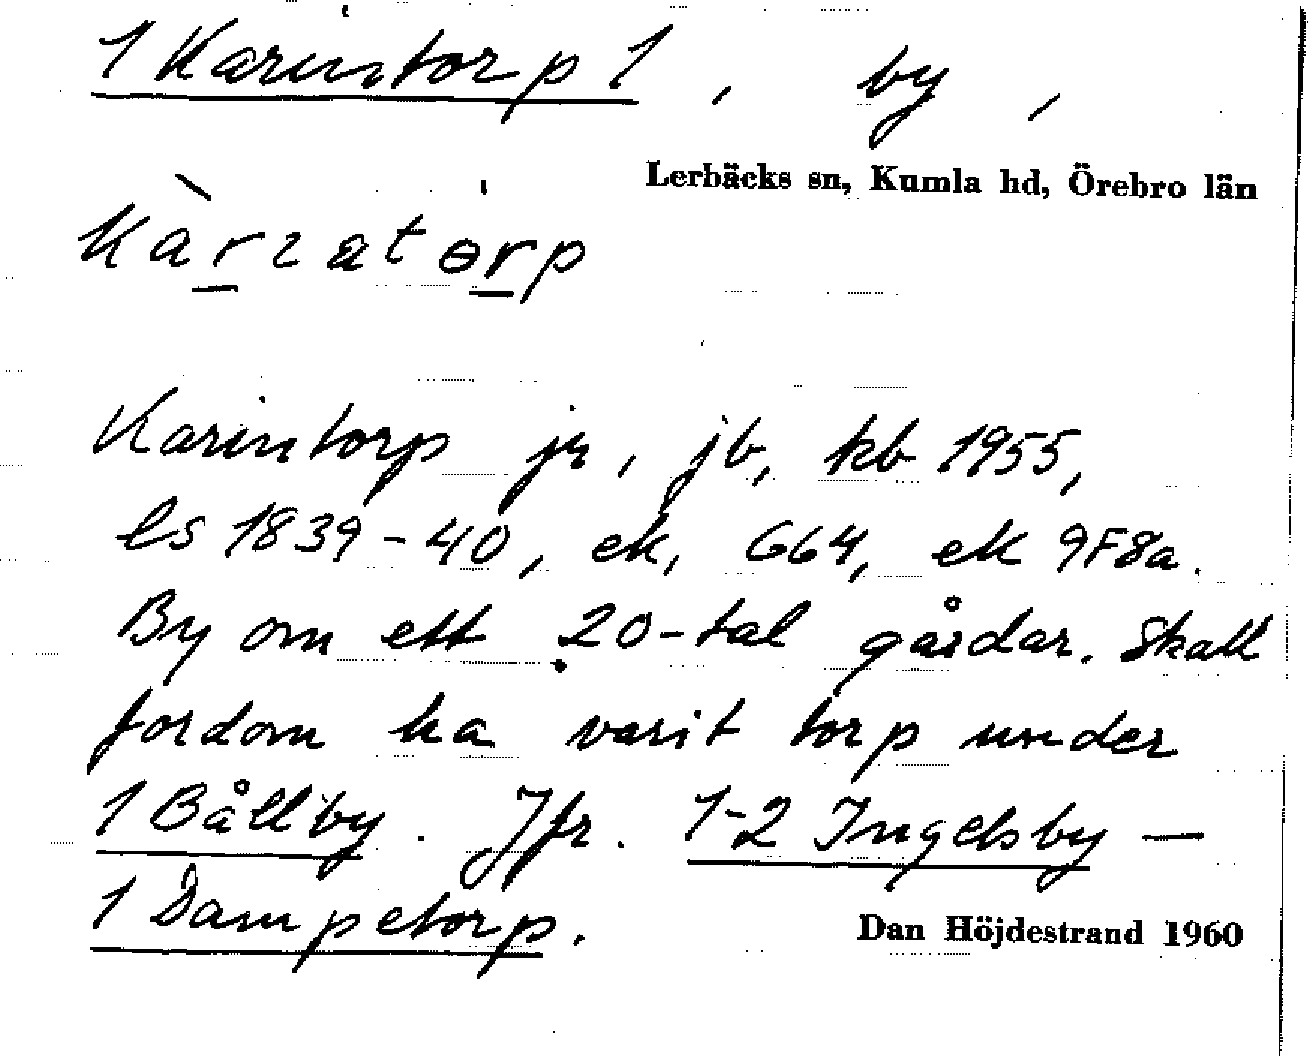 1 Karintorp 1, by,
Lerbäcks sn, Kumla hd, Örebro län
Karintorp jr, jb, kb 1955,
ls 1839-40, ek, G64, ek 9F8a.
By om ett 20-tal gårdar. Skall
fordom ha varit torp under
1 Bållby. Jfr. 1-2 Ingelsby —
1 Dampetorp.
Dan Höjdestrand 1960